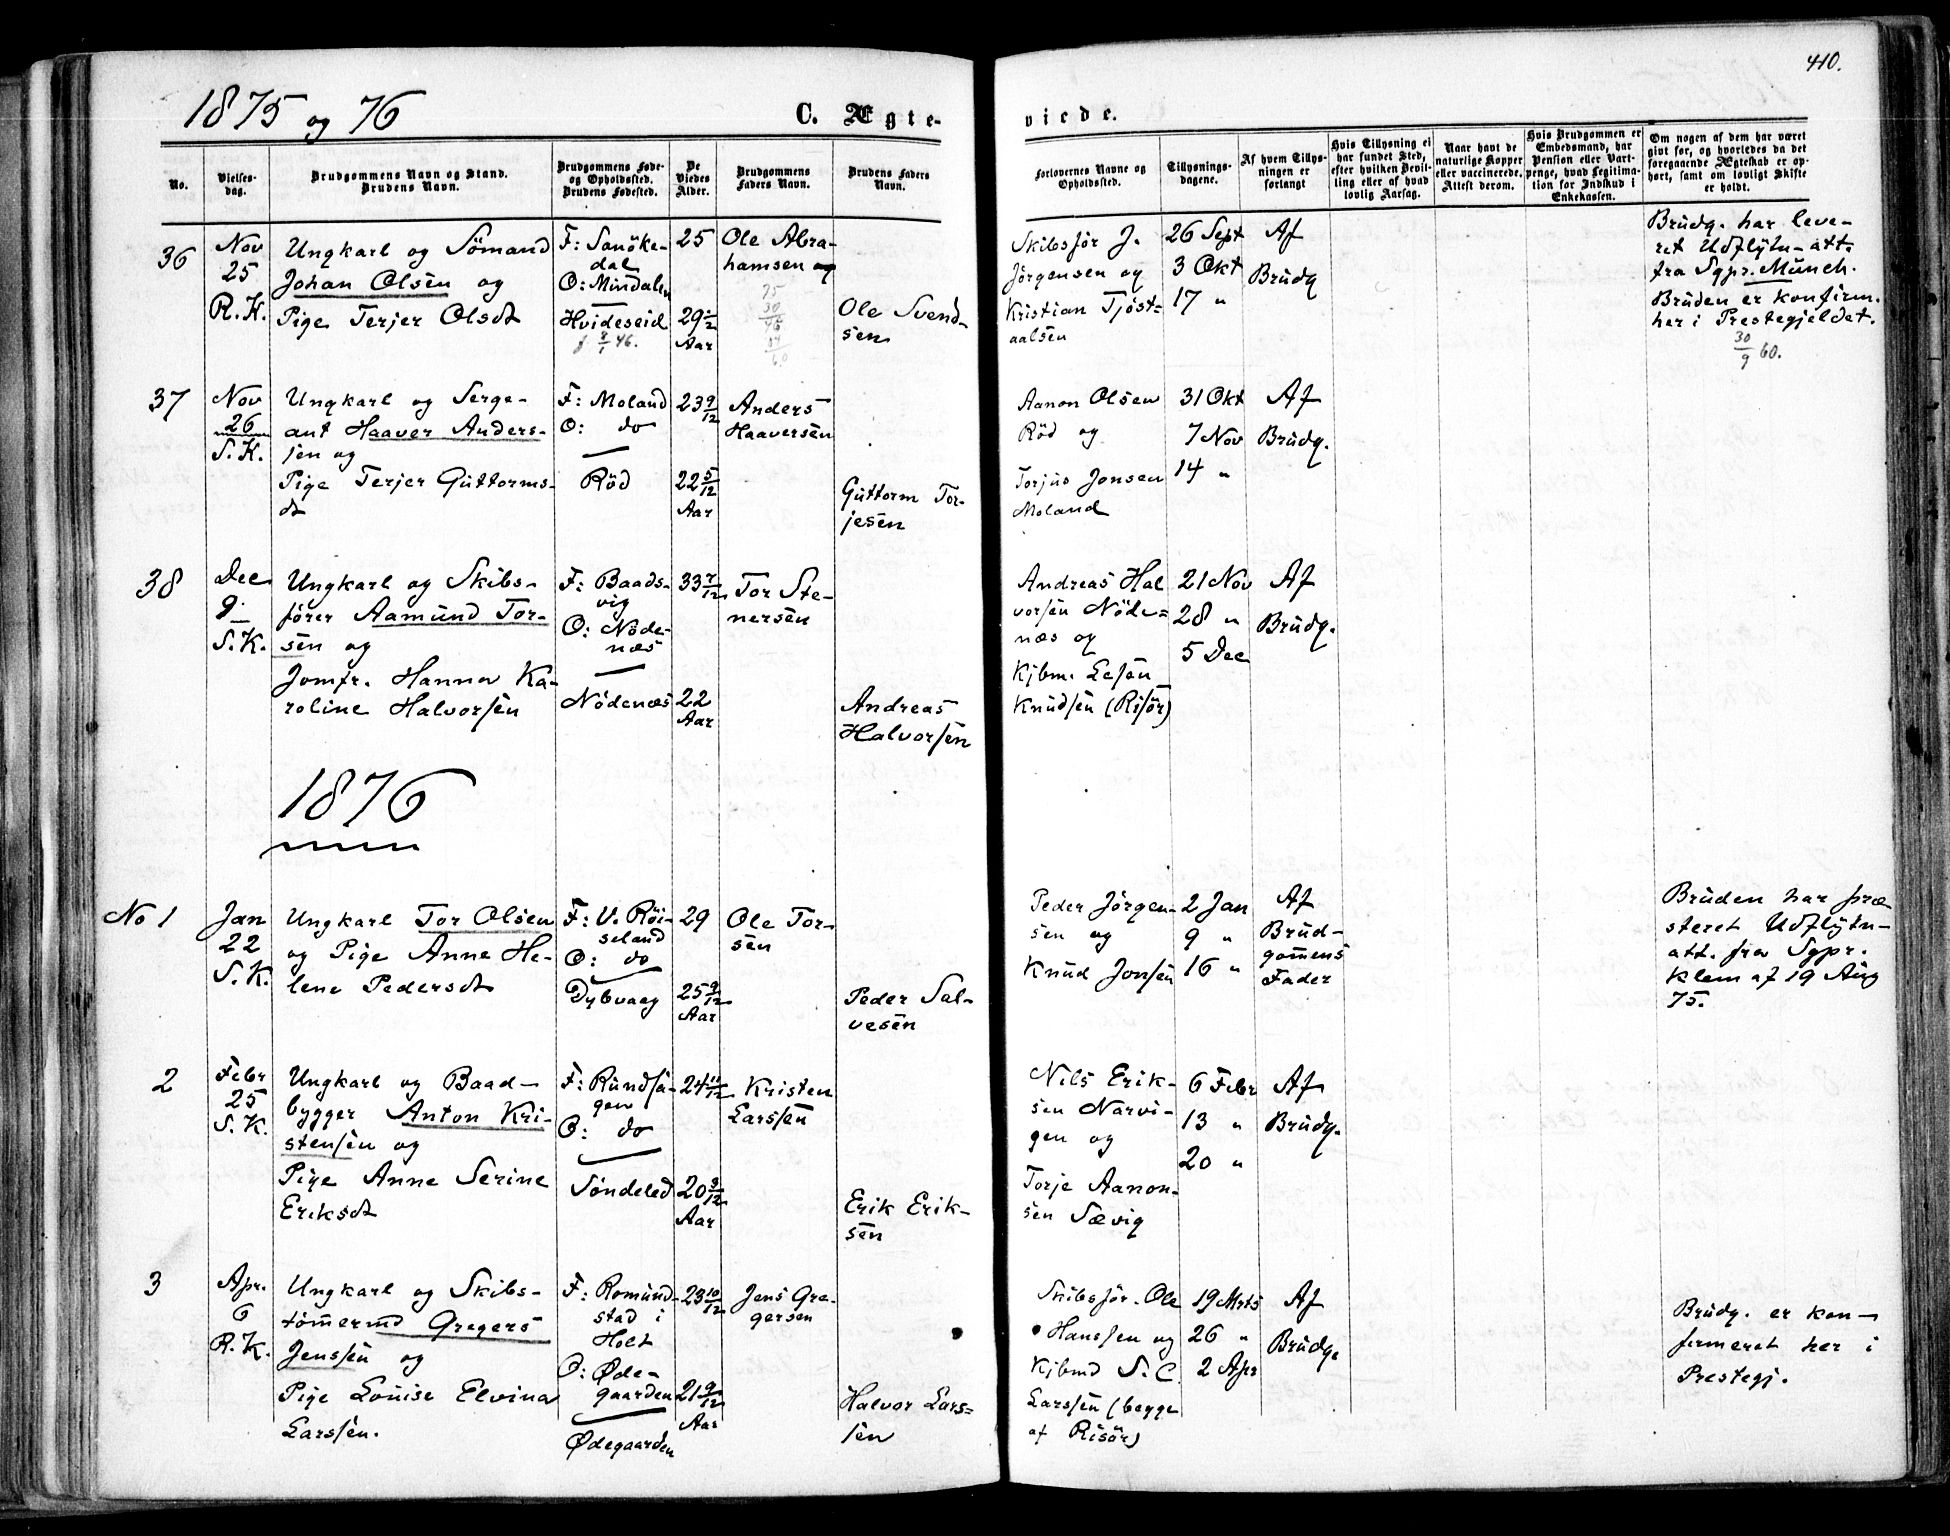 410.
1875 og 76
C. Ægte-
viede.
No.
Vielses-
dag.
Brudgommens Navn og Stand.
Brudens Navn.
Brudgommens Føde-
og Opholdssted.
Brudens Fødested.
De
Viedes
Alder.
Brudgommens
Faders Navn.
Brudens Faders
Navn.
Forlovernes Navne og
Opholdssted.
Tillysnings-
dagene.
Af hvem Tillys-
ningen er
forlangt
Hvis Tillysning ei
har fundet Sted,
efter hvilken Bevil-
ling eller af hvad
lovlig Aarsag.
Naar havt de
naturlige Kopper
eller vaccinerede.
Attest derom.
Hvis Brudgommen er
Embedsmand, har
Pension eller Vart-
penge, hvad Legitima-
tion for Indskud i
Enkekassen.
Om nogen af dem har været
gift før, og hvorledes da det
foregaaende Ægteskab er op-
hørt, samt om lovligt Skifte
er holdt.
36
Nov
25
R. K.
Ungkarl og Sömand
Johan Olsen og
Pige Terjer Olsdt
F: Sanöke-
dal
O: Mindalen
Hvideseid
f 8/1 46.
25
29 1/2
Aar
Ole Abra-
hamsen og
75
30
45
14
60
Ole Svend-
sen
Skibsför J.
Jörgensen og
Kristian Tjöst-
aalsen
26 Sept
3 Okt
17 "
Af
Brudg
Brudg. har leve-
ret Udflytn-att.
fra Sgpr. Münch.
Bruden er konfirm.
her i Prestegjeldet.
30/9 60.
37
Nov
26
S. K.
Ungkarl og Serge-
ant Haaver Anders-
sen og
Pige Terjer Guttorms-
dt
F: Moland
O: do
Röd
23 9/12
22 5/12
Aar
Anders
Haaversen
Guttorm Tor-
jesen
Aanon Olsen
Röd og
Torjus Jonsen
Moland
31 Okt
7 Nov
14 "
Af
Brudg.
38
Dec
9.
S. K.
Ungkarl og Skibs-
förer Aamund Tor-
sen og
Jomfr. Hanna Ka-
roline Halvorsen
F: Baads-
vig
O: Nöde-
næs
Nödenæs
33 7/12
22
Aar
Tor Ste-
nersen
Andreas
Halvorsen
Andreas Hal
vorsen Nöde-
næs og
Kjbm. Eesen
Knudsen (Risör)
21 Nov
28 "
5 Dec
Af
Brudg.
1876
No 1
Jan
22
S. K.
Ungkarl Tor Olsen
og Pige Anne He-
lene Pedersdt
F: V. Röi-
seland
O: do
Dybvaag
29
25 9/12
Aar
Ole Tor-
sen
Peder Sal-
vesen
Peder Jörgen-
sen og
Knud Jonsen
2 Jan
9 "
16 "
Af
Brud-
gomens
Fader
Bruden har præ-
steret Udflytn-
att. fra Sgpr.
Klem af 19 Aug
75.
2
Febr
25
S. K.
Ungkarl og Baad-
bygger Anton Kri-
stensen og
Pige Anne Serine
Eriksdt
F: Rundsa-
gen
O: do
Söndeled
24 11/12
20 3/12
Aar
Kristen
Larssen
Erik Erik-
sen
Nils Erik-
sen Narvi-
gen og
Torje Aanon-
sen Sævig
6 Febr
13 "
20 "
Af
Brudg.
3
Apr.
6
R. K.
Ungkarl og Skibs-
tömermd Gregers
Jenssen og
Pige Louise Elvina
Larssen.
F: Romund-
stad i
Holt
O: Øde-
gaarden
Ødegaarden
23 10/12
21 9/12
Aar
Jens Gre-
gersen
Halvor Lars-
sen
Skibsför. Ole
Hanssen og
Kjbmd S. C.
Larssen (begge
af Risör)
19 Mrts
26 "
2 Apr
Af
Brudg.
Brudg. er kon-
firmeret her i
Prestegj.